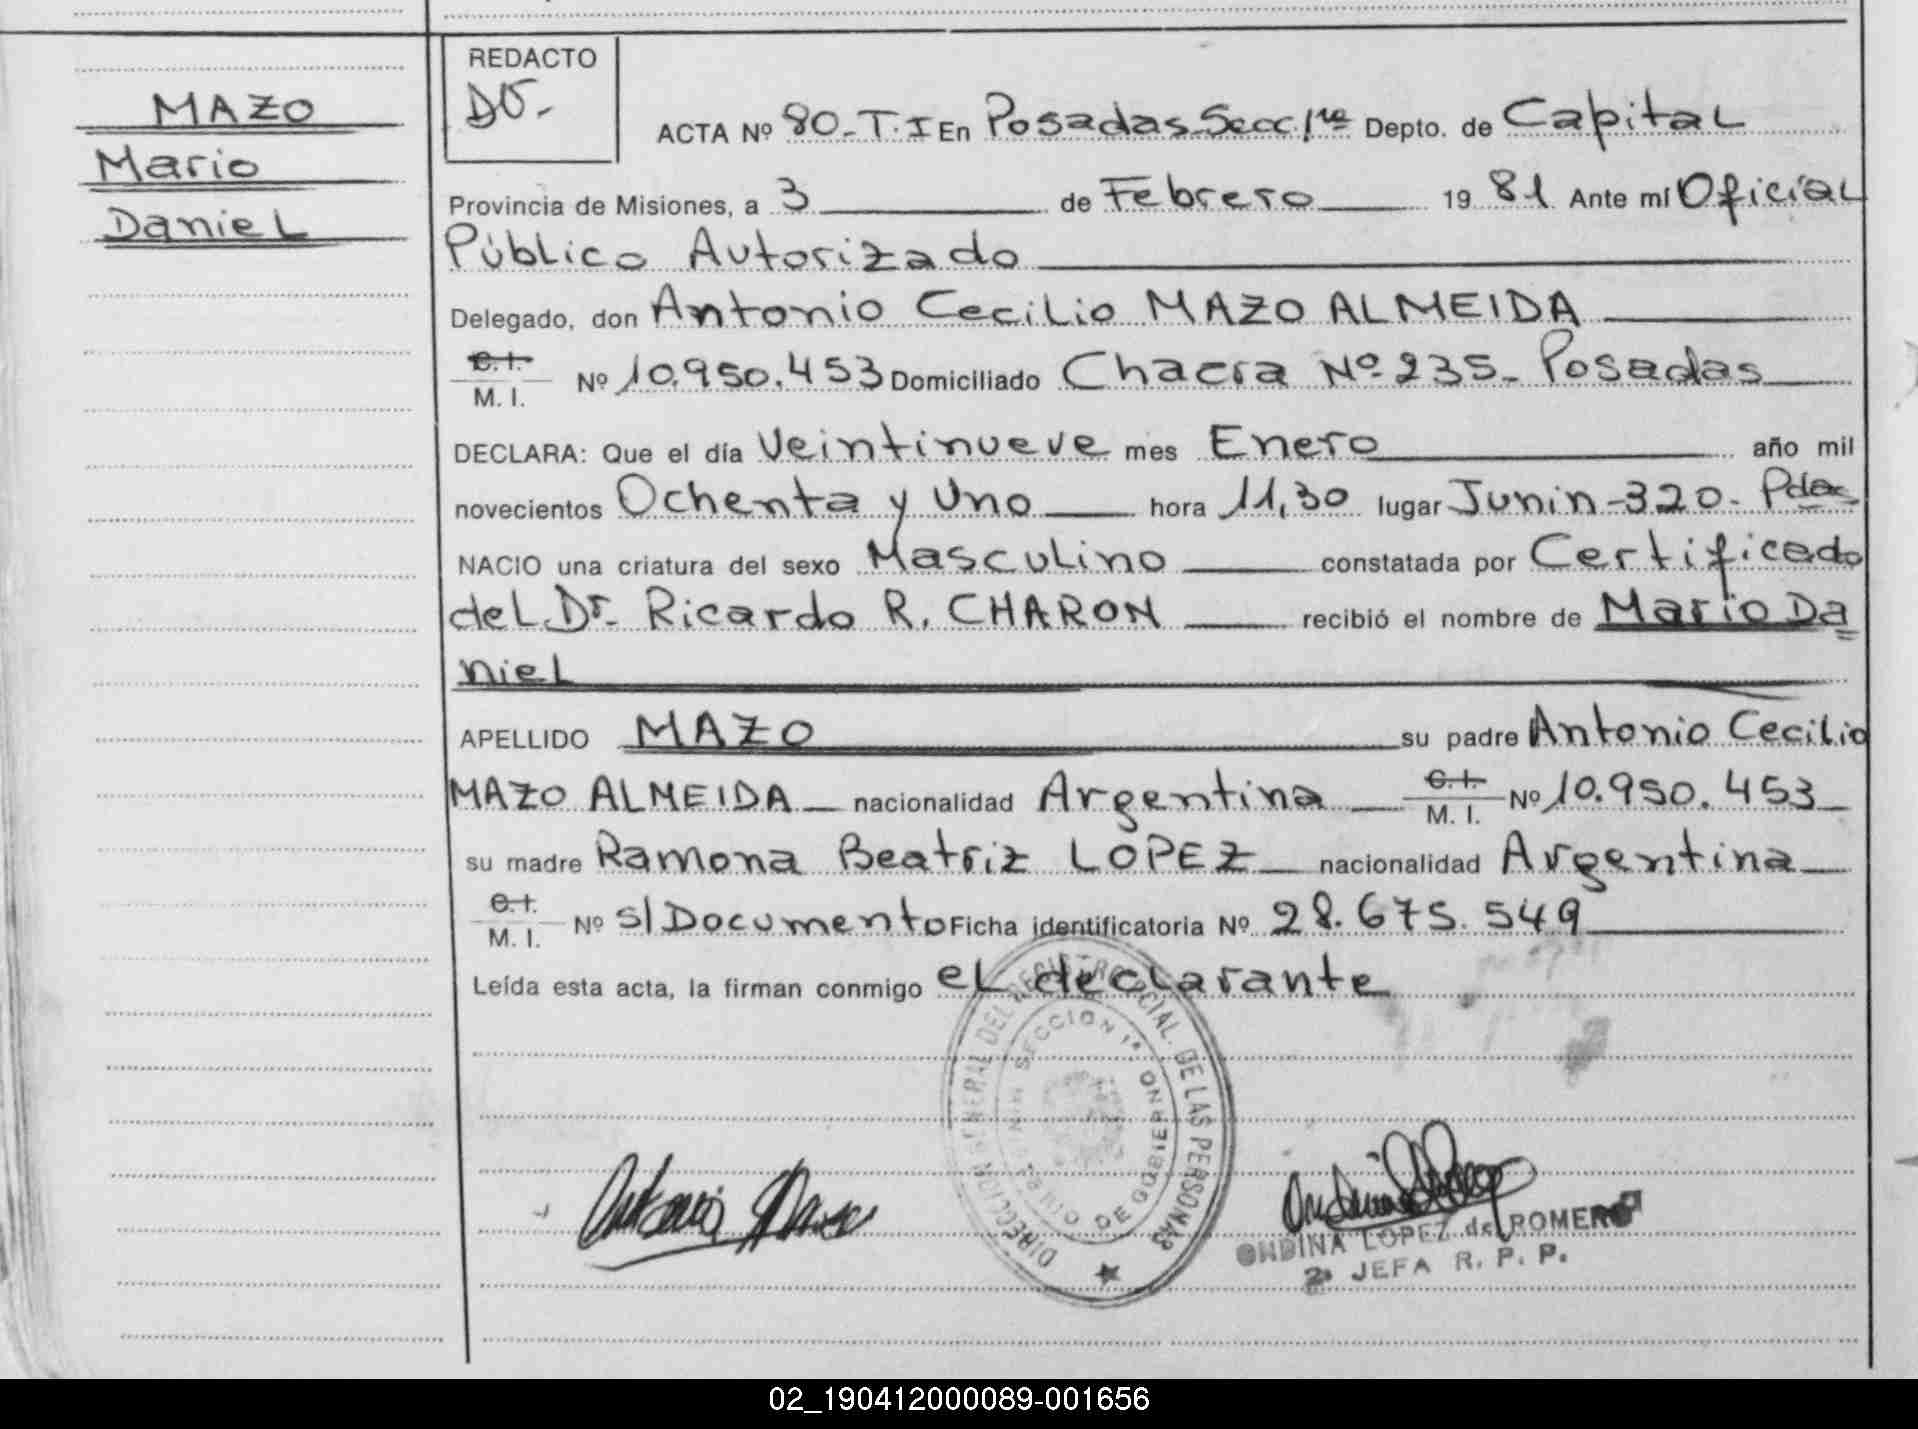 MAZO
Mario
Daniel
REDACTO
ACTA Nº 80-T.I En Posadas-Secc. 1ra Depto. de Capital
Provincia de Misiones, a 3 de Febrero 1981 Ante mí Oficial
Público Autorizado
Delegado, don Antonio Cecilio MAZO ALMEIDA
C. I.
M. I. Nº 10.950.453 Domiciliado Chacra Nº 235- Posadas
DECLARA: Que el día Veintinueve mes Enero año mil
novecientos Ochenta y Uno hora 11,30 lugar Junin-320- Pdas
NACIO una criatura del sexo Masculino constatada por Certificado
del Dr. Ricardo R. CHARON recibió el nombre de Mario Da
niel
APELLIDO MAZO su padre Antonio Cecilio
MAZO ALMEIDA nacionalidad Argentina C. I. M. I. Nº 10.950.453
su madre Ramona Beatriz LOPEZ nacionalidad Argentina
C. I.
M. I. Nº s/Documento Ficha identificatoria Nº 28.675.549
Leída esta acta, la firman conmigo el declarante
DIRECCION GENERAL DEL REGISTRO PROVINCIAL DE LAS PERSONAS
SECCION 1ª
MINISTERIO DE GOBIERNO
ONDINA LOPEZ de ROMERO
2ª JEFA R. P. P.
02_190412000089-001656